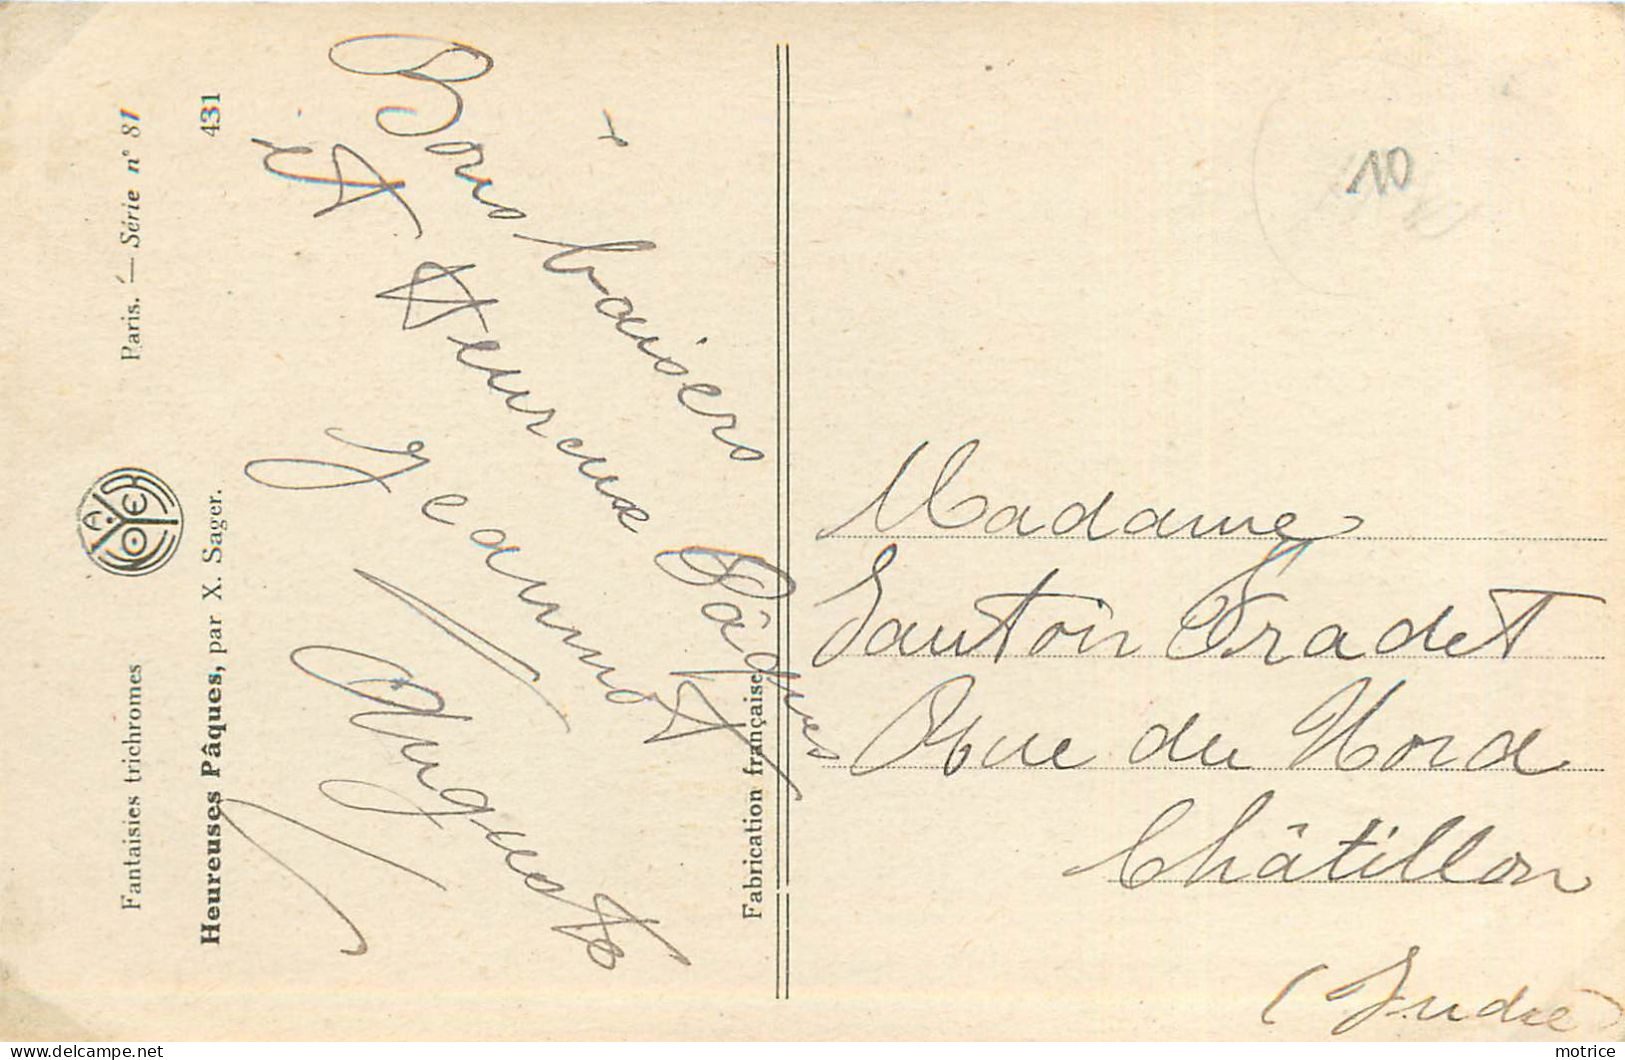 Fantaisies trichromes
A. NOYER
Paris. — Série n° 81
Heureuses Pâques, par X. Sager.
431
Bons baisers
et Heureux Pâques
Jeannot
Auguste
Fabrication française
10
Madame
Fradet
Rue du Nord
Châtillon
(Indre)
motrice